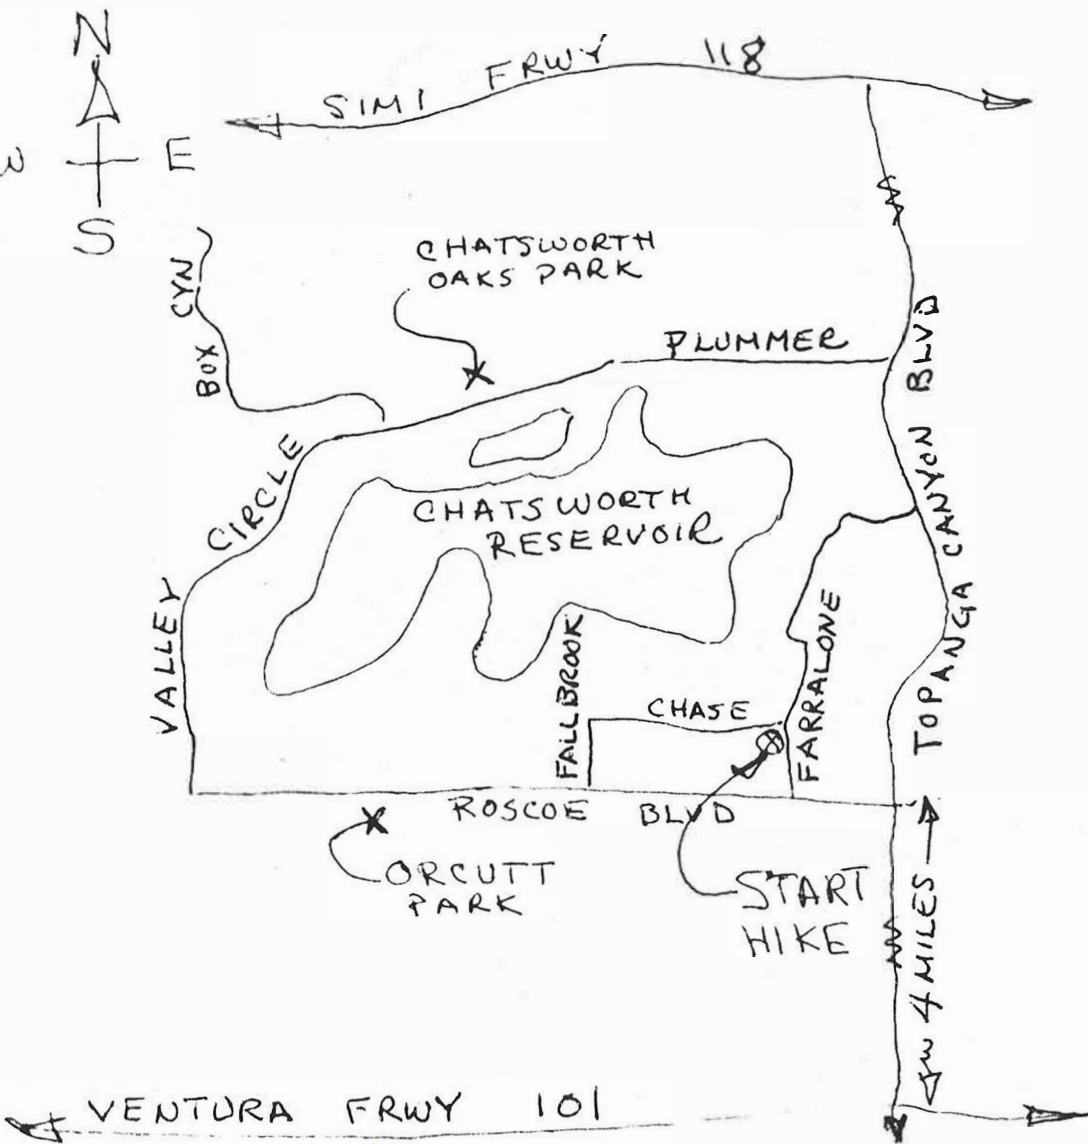 N
W E
S
SIMI FRWY 118
CHATSWORTH
OAKS PARK
BOX CYN
PLUMMER
TOPANGA CANYON BLVD
VALLEY CIRCLE
CHATSWORTH
RESERVOIR
FALLBROOK
CHASE
FARRALONE
ROSCOE BLVD
ORCUTT
PARK
START
HIKE
4 MILES
VENTURA FRWY 101